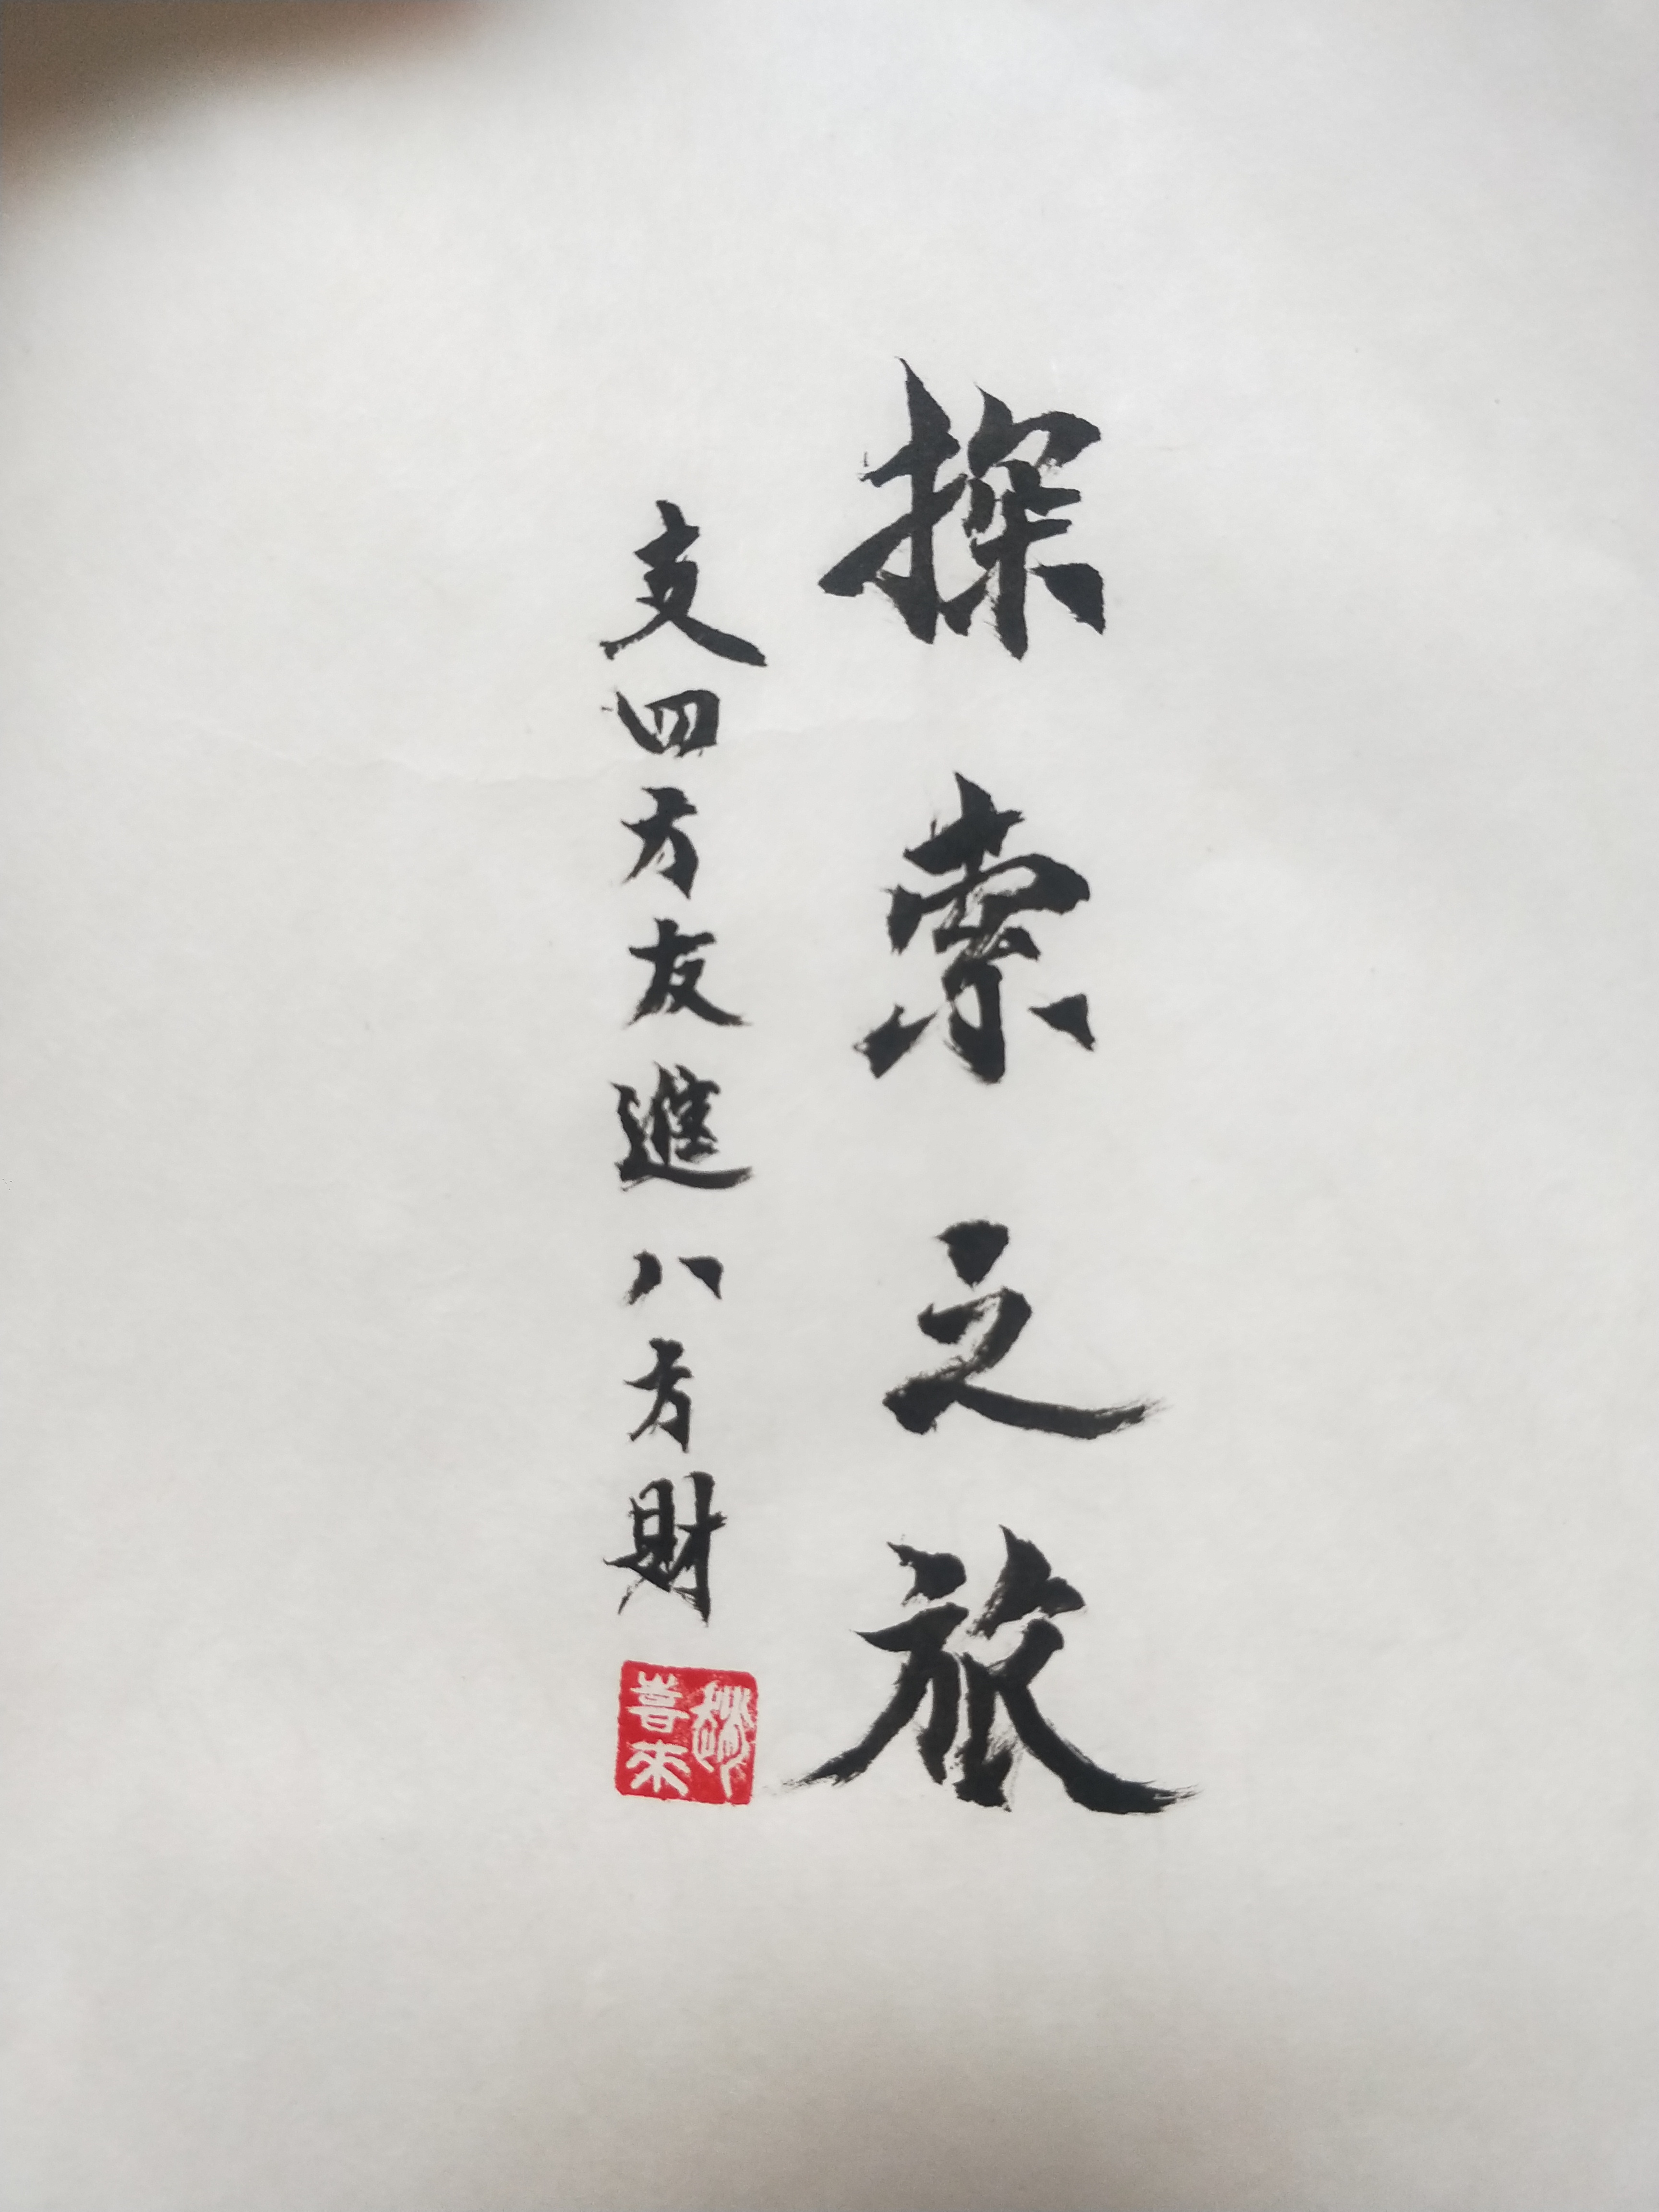 探索之旅
交四方友進八方財